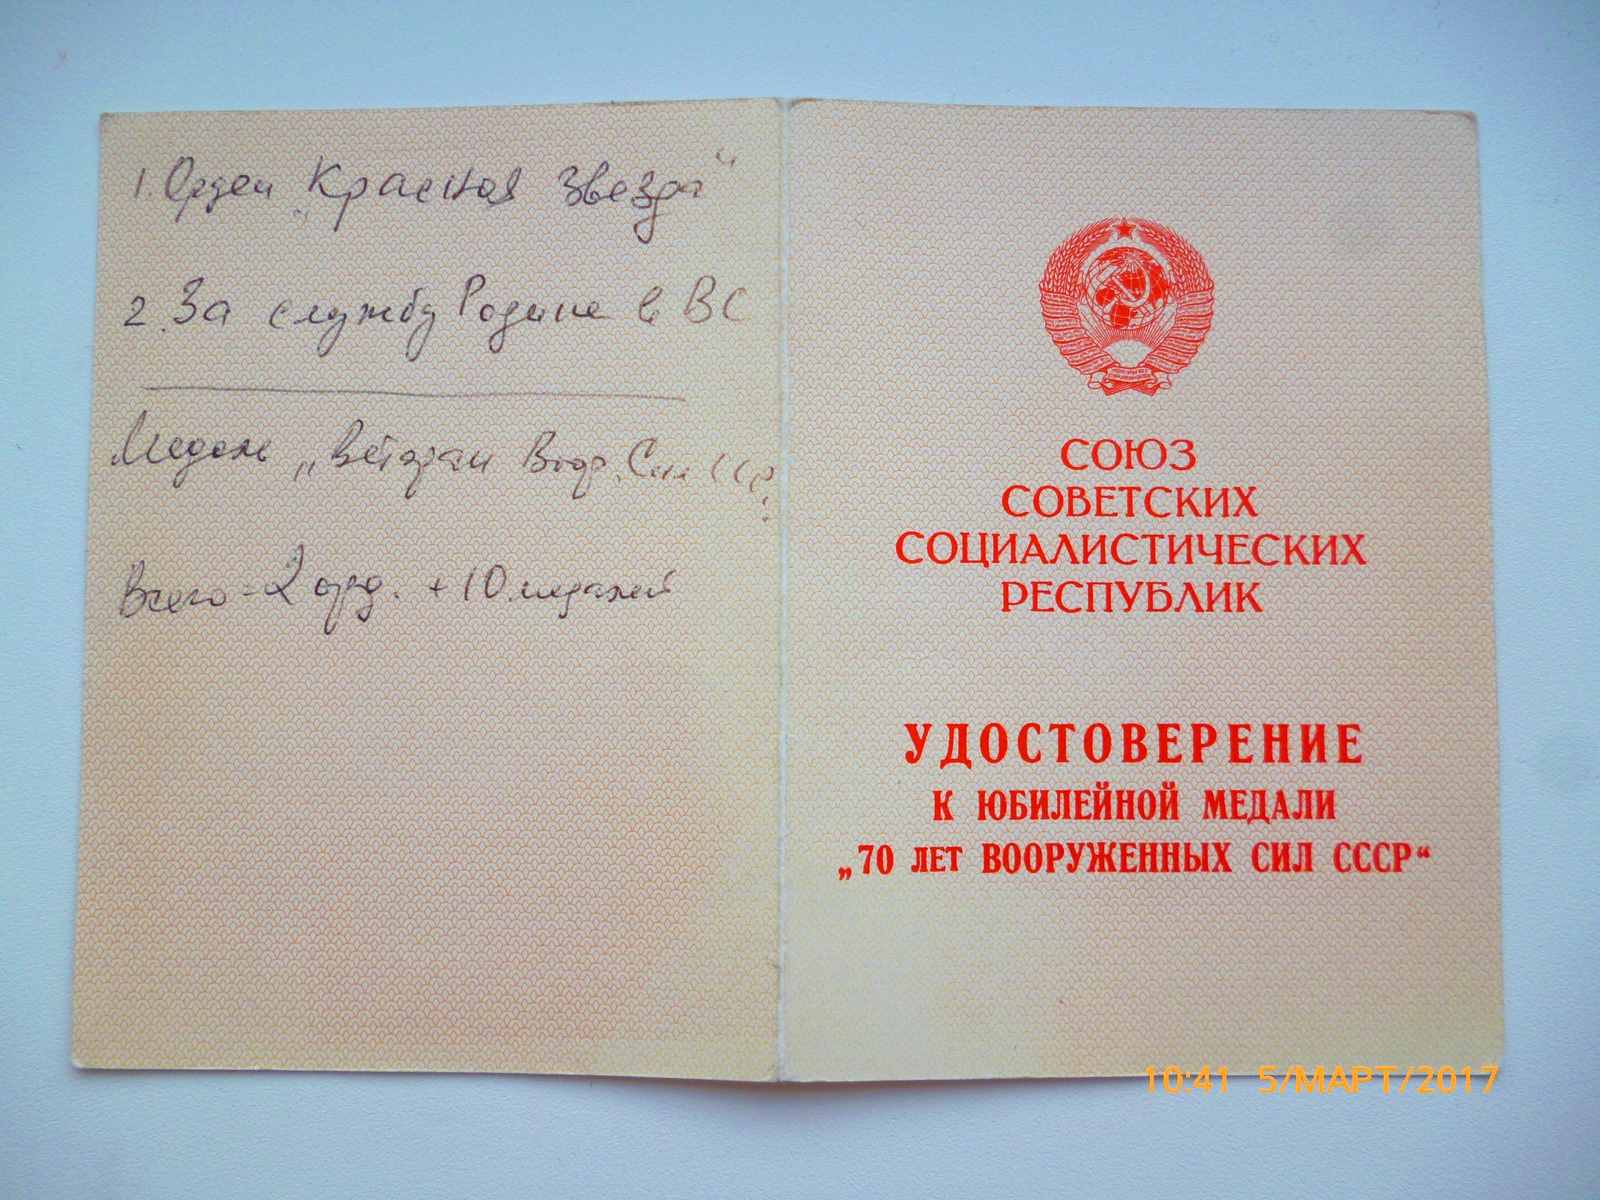 1. Орден „Красная Звезда“
2. За службу Родине в ВС
Медаль „Ветеран Воор. Сил СССР
Всего = 2 орд. + 10 медалей
СОЮЗ
СОВЕТСКИХ
СОЦИАЛИСТИЧЕСКИХ
РЕСПУБЛИК
УДОСТОВЕРЕНИЕ
К ЮБИЛЕЙНОЙ МЕДАЛИ
„70 ЛЕТ ВООРУЖЕННЫХ СИЛ СССР“
10:41 5/МАРТ/2017